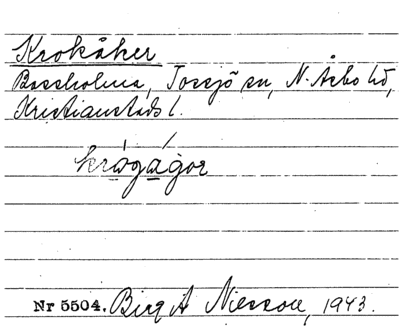 Krokåker
Bassholma, Tossjö sn, N. Åsbo hd,
Kristianstads l.
krågågor
Nr 5504. Birg A Nilsson, 1943.